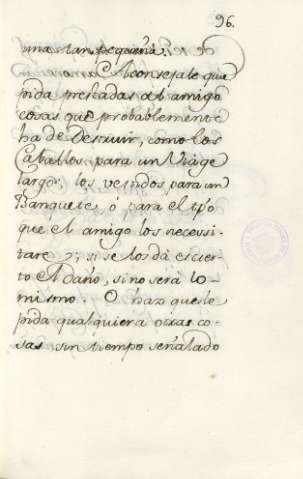 96.
una tan pequeña.
Aconsejale que
pida prestadas al amigo
cosas que probablemente
ha de Destruir, como los
Caballos para un Viage
largo; los vestidos para un
Banquete, ó para el tpo
que el amigo los necessi-
tare; si se los dà es cier-
to el daño, si no serà lo
mismo. O haz que le
pida qualquiera otras co-
sas sin tiempo señalado